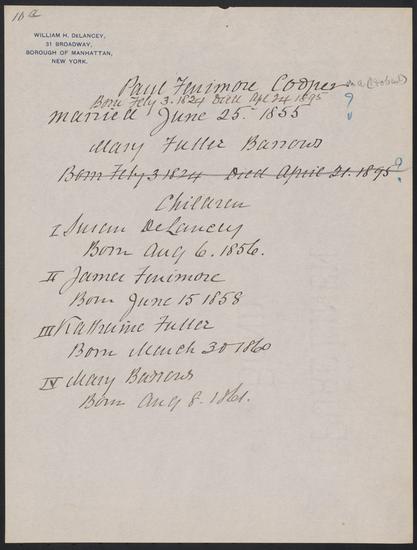 10 a
WILLIAM H. DELANCEY,
31 BROADWAY,
BOROUGH OF MANHATTAN,
NEW YORK.
Paul Fenimore Cooper
Born Feby 3. 1824 Died Apl 21 1895 ?
Married June 25th 1855
Mary Fuller Barrows
Born Feby 3 1824 Died April 21. 1895 ?
Children
I Susan DeLancey
Born Aug 6. 1856.
II James Fenimore
Born June 15 1858
III Katharine Fuller
Born March 30 1860
IV Mary Barrows
Born Aug 8. 1861.